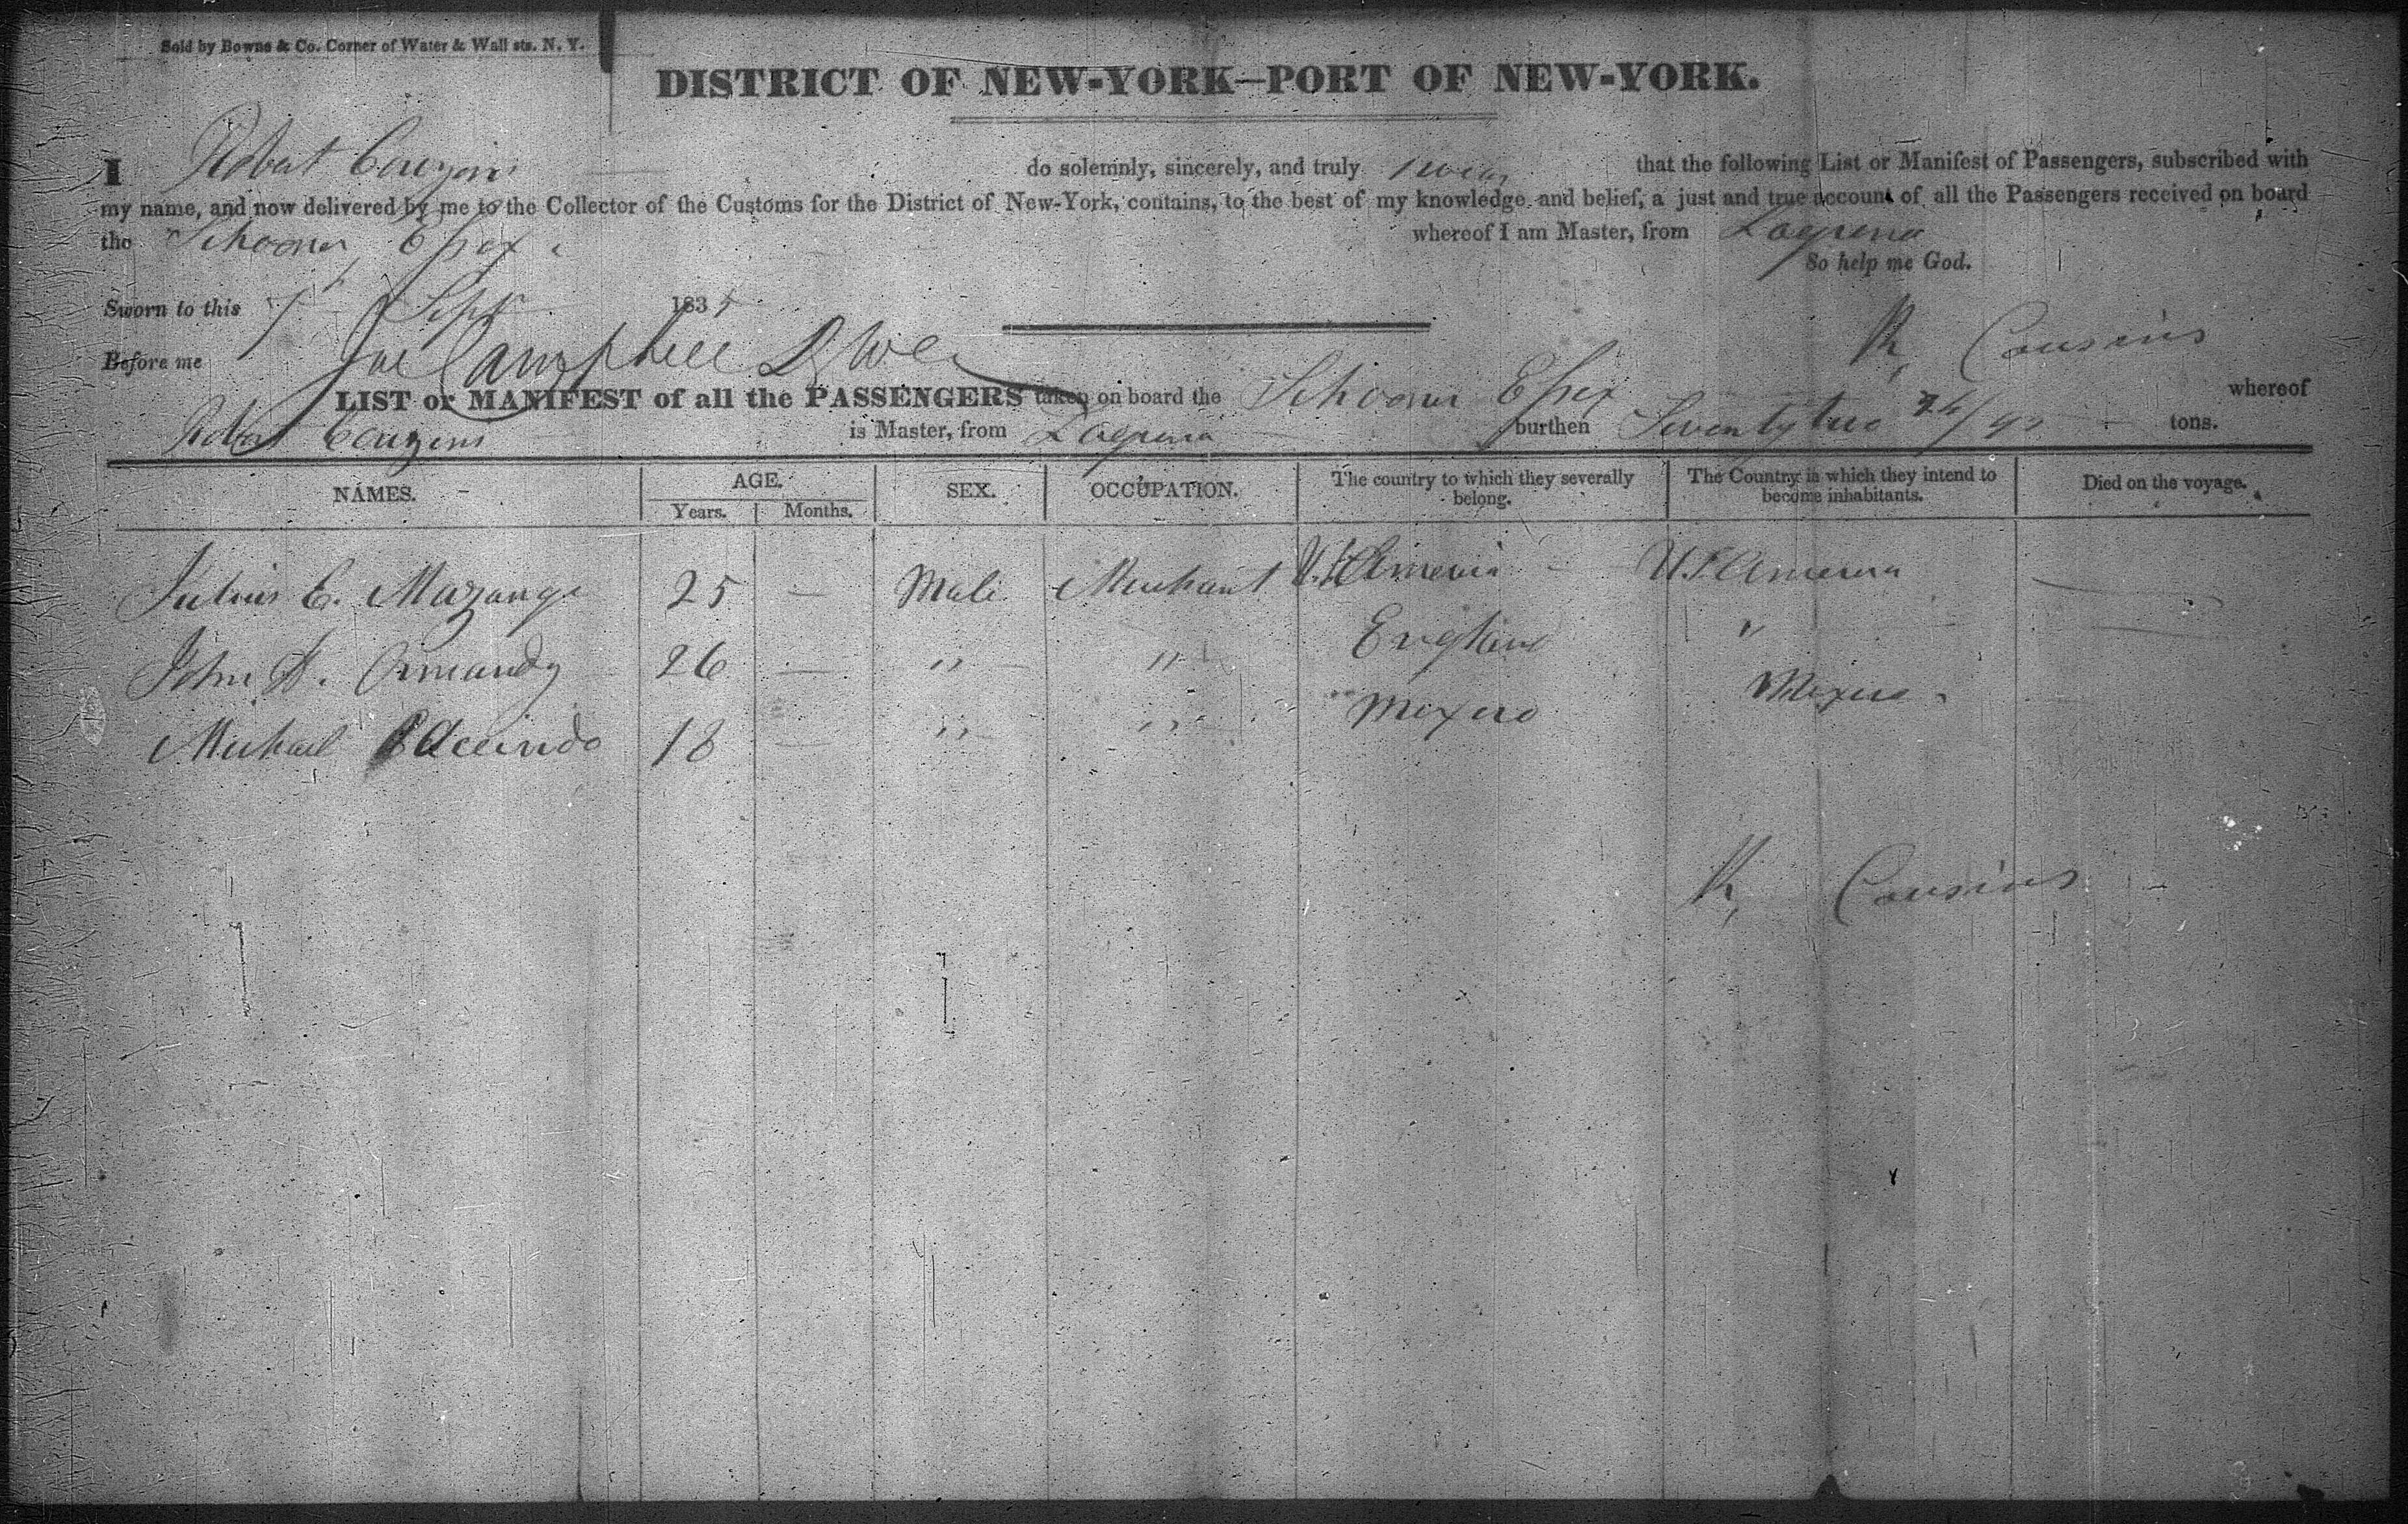 Sold by Bowne & Co. Corner of Water & Wall sts. N. Y.
DISTRICT OF NEW-YORK—PORT OF NEW-YORK.
I Robert Couzins do solemnly, sincerely, and truly swear that the following List or Manifest of Passengers, subscribed with
my name, and now delivered by me to the Collector of the Customs for the District of New-York, contains, to the best of my knowledge and belief, a just and true account of all the Passengers received on board
the Schooner Essex whereof I am Master, from Laguna
So help me God.
Sworn to this 7th Sept 1835
Before me Campbell
R, Cousins
LIST or MANIFEST of all the PASSENGERS taken on board the Schooner Essex whereof
Robert Couzens is Master, from Laguna burthen Seventy two tons.
NAMES. AGE. SEX. OCCUPATION. The country to which they severally belong. The Country in which they intend to become inhabitants. Died on the voyage.
Years. Months.
Julius E. Mazange 25 — Male Merchant U.S. America U.S. America
John D. Ormandy 26 — " " England "
Michael 18 — " " Mexico Mexico
R, Cousins